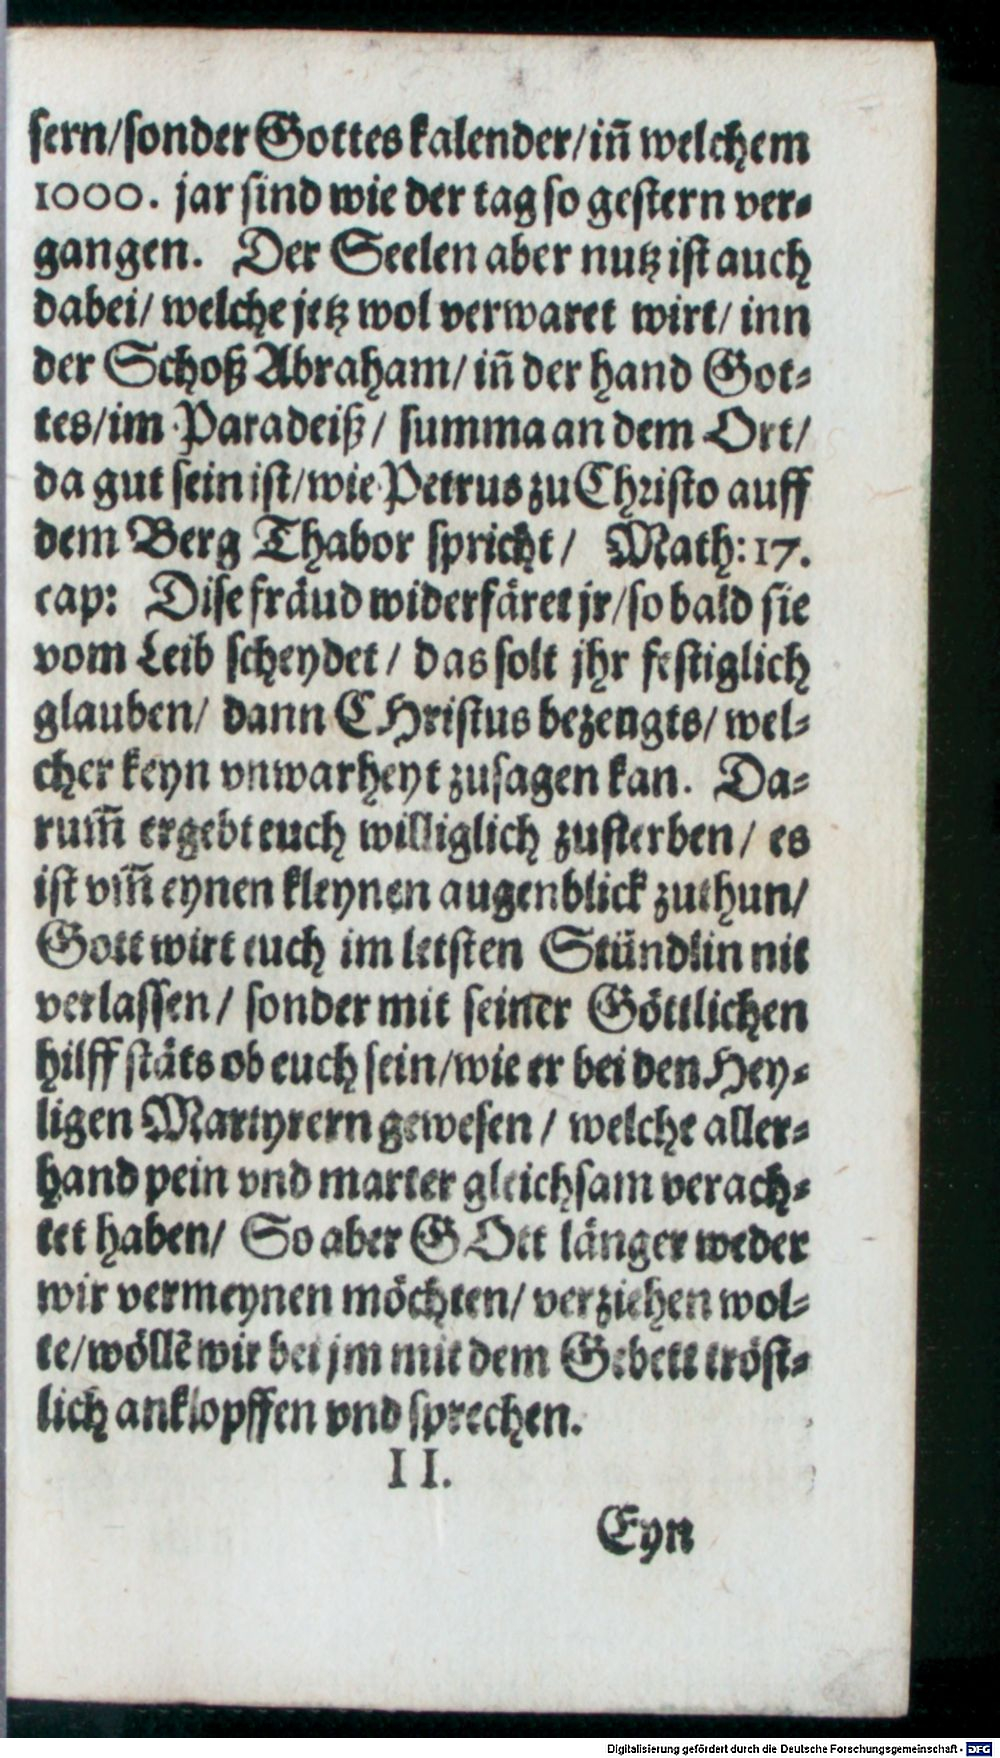 sern/sonder Gottes kalender/iñ welchem
1000. jar sind wie der tag so gestern ver⸗
gangen. Der Seelen aber nutz ist auch
dabei/ welche jetz wol verwaret wirt/ inn
der Schoß Abraham/ iñ der hand Got⸗
tes/im Paradeiß/ summa an dem Ort/
da gut sein ist/wie Petrus zu Christo auff
dem Berg Thabor spricht/ Math: 17.
cap: Dise fräud widerfäret jr/so bald sie
vom Leib scheydet/ das solt jhr festiglich
glauben/ dann CHristus bezeugts/ wel⸗
cher keyn vnwarheyt zusagen kan. Da⸗
rum̃ ergebt euch williglich zusterben/ es
ist vm̃ eynen kleynen augenblick zuthun/
Gott wirt euch im letsten Stündlin nit
verlassen/ sonder mit seiner Göttlichen
hilff stäts ob euch sein/wie er bei den Hey⸗
ligen Martyrern gewesen/ welche aller⸗
hand pein vnd marter gleichsam verach⸗
tet haben/ So aber GOtt länger weder
wir vermeynen möchten/ verziehen wol⸗
te/wöllẽ wir bei jm mit dem Gebett tröst⸗
lich anklopffen vnd sprechen.
II.
Eyn
Digitalisierung gefördert durch die Deutsche Forschungsgemeinschaft - DFG